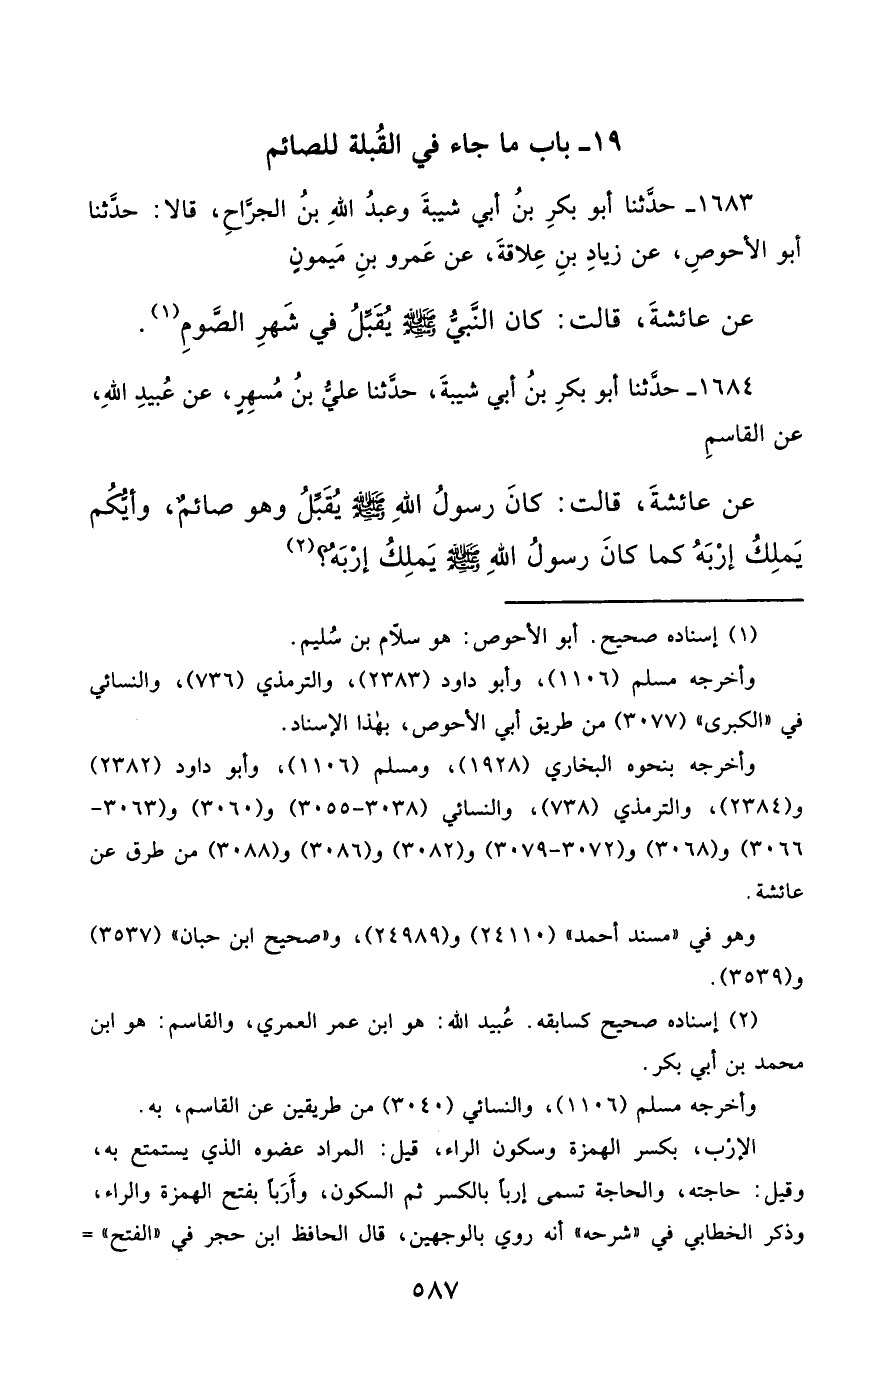 ١٩ـ باب ما جاء في القُبلة للصائم
١٦٨٣ـ حدَّثنا أبو بكرِ بنُ أبي شيبةَ وعبدُ اللهِ بنُ الجرَّاحِ، قالا: حدَّثنا
أبو الأحوصِ، عن زيادِ بنِ عِلاقةَ، عن عَمرو بنِ مَيمونٍ
عن عائشةَ، قالت: كان النَّبيُّ ﷺ يُقَبِّلُ في شَهرِ الصَّومِ(١).
١٦٨٤ـ حدَّثنا أبو بكرِ بنُ أبي شيبةَ، حدَّثنا عليُّ بنُ مُسهِرٍ، عن عُبيدِ اللهِ،
عن القاسمِ
عن عائشةَ، قالت: كانَ رسولُ اللهِ ﷺ يُقَبِّلُ وهو صائمٌ، وأيُّكُم
يَملِكُ إرْبَهُ كما كانَ رسولُ اللهِ ﷺ يَملِكُ إرْبَهُ؟(٢)
(١) إسناده صحيح. أبو الأحوص: هو سلّام بن سُليم.
وأخرجه مسلم (١١٠٦)، وأبو داود (٢٣٨٣)، والترمذي (٧٣٦)، والنسائي
في «الكبرى» (٣٠٧٧) من طريق أبي الأحوص، بهٰذا الإسناد.
وأخرجه بنحوه البخاري (١٩٢٨)، ومسلم (١١٠٦)، وأبو داود (٢٣٨٢)
و(٢٣٨٤)، والترمذي (٧٣٨)، والنسائي (٣٠٣٨-٣٠٥٥) و(٣٠٦٠) و(٣٠٦٣-
٣٠٦٦) و(٣٠٦٨) و(٣٠٧٢-٣٠٧٩) و(٣٠٨٢) و(٣٠٨٦) و(٣٠٨٨) من طرق عن
عائشة.
وهو في «مسند أحمد» (٢٤١١٠) و(٢٤٩٨٩)، و«صحيح ابن حبان» (٣٥٣٧)
و(٣٥٣٩).
(٢) إسناده صحيح كسابقه. عُبيد الله: هو ابن عمر العمري، والقاسم: هو ابن
محمد بن أبي بكر.
وأخرجه مسلم (١١٠٦)، والنسائي (٣٠٤٠) من طريقين عن القاسم، به.
الإرْب، بكسر الهمزة وسكون الراء، قيل: المراد عضوه الذي يستمتع به،
وقيل: حاجته، والحاجة تسمى إرباً بالكسر ثم السكون، وأَرَباً بفتح الهمزة والراء،
وذكر الخطابي في «شرحه» أنه روي بالوجهين، قال الحافظ ابن حجر في «الفتح» =
٥٨٧